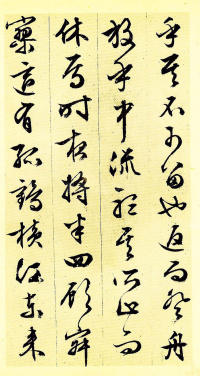 乎其不可留也返而登舟
放乎中流聽其所止而
休焉時夜將半四顧寂
寥適有孤鶴橫江東來